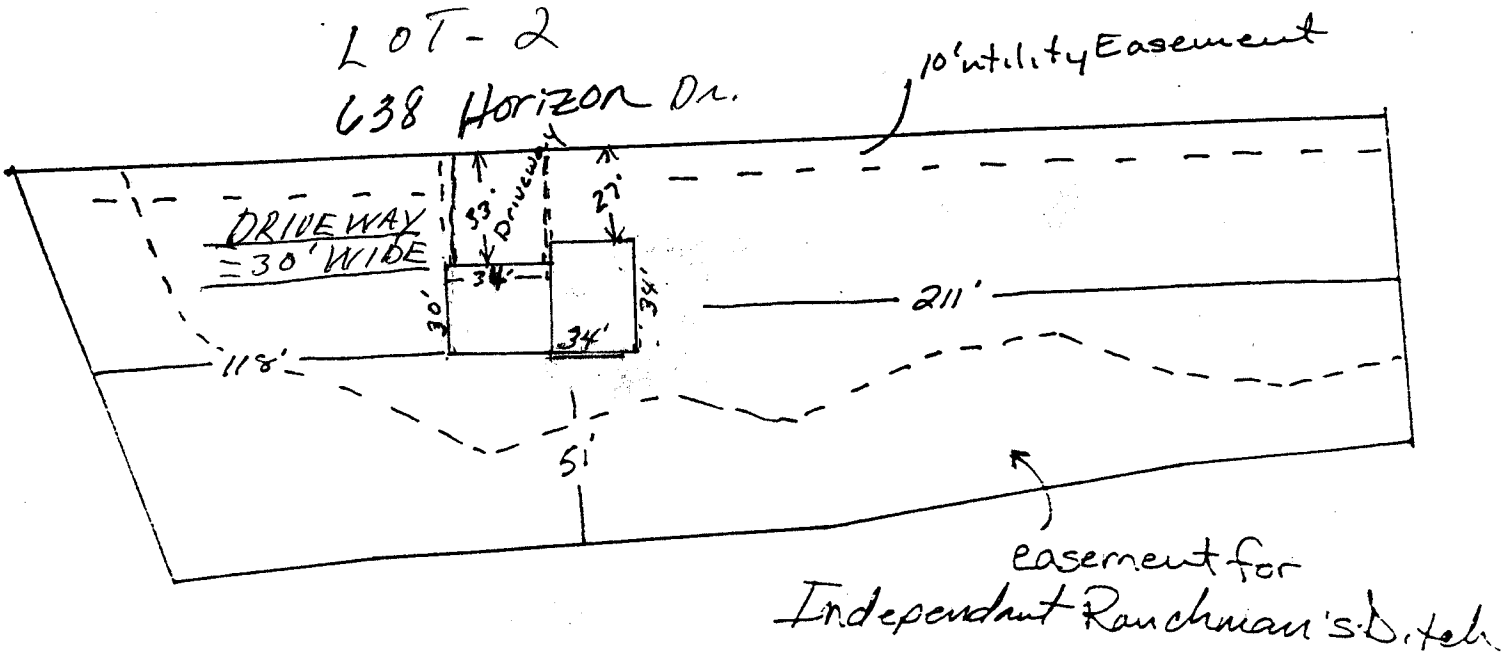 LOT - 2
638 Horizon Dr.
10' utility Easement
33'
Driveway
27'
DRIVEWAY
= 30' WIDE
34'
30'
34'
34'
211'
118'
51'
easement for
Independant Ranchman's Ditch